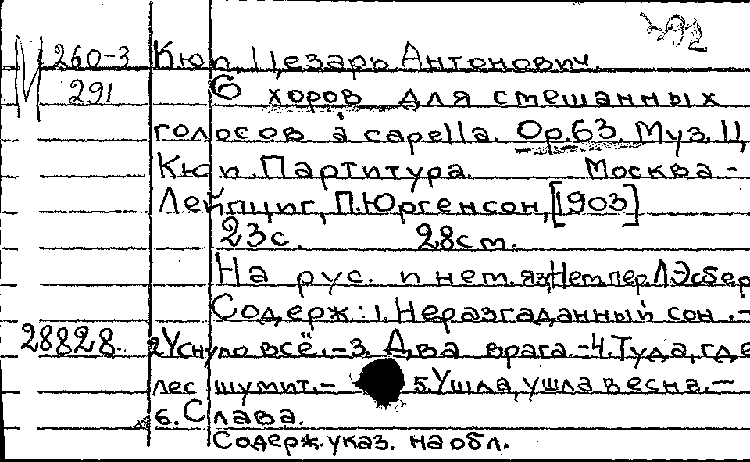 М 260-3 Кюи Цезарь Антонович.
291 6 хоров для смешанных
голосов à capella. Op. 63. Муз. Ц.
Кюи. Партитура. Москва -
Лейпциг, П. Юргенсон, [1903]
23 с. 28 см.
На рус. и нем. яз. Нем. пер. Л. Эсбер
Содерж: 1. Неразгаданный сон. -
28828. 2. Уснуло всё. - 3. Два врага - 4. Туда, где
лес шумит. - 5. Ушла, ушла весна. -
6. Слава.
Содерж. указ. на обл.